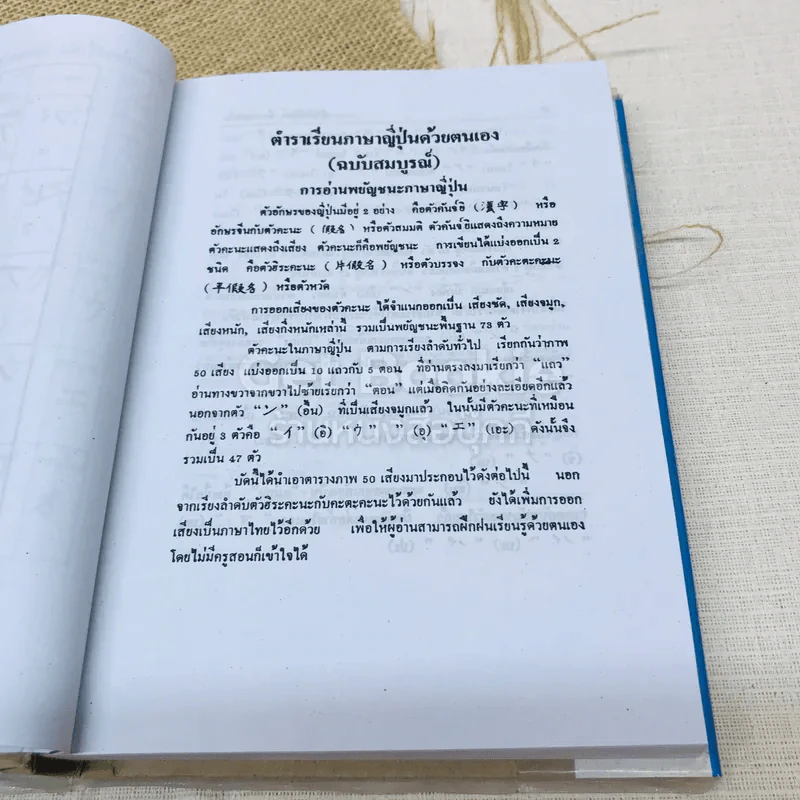 ตำราเรียนภาษาญี่ปุ่นด้วยตนเอง
(ฉบับสมบูรณ์)
การอ่านพยัญชนะภาษาญี่ปุ่น
ตัวอักษรของญี่ปุ่นมีอยู่ 2 อย่าง คือตัวคันจ์ยิ (漢字) หรือ
อักษรจีนกับตัวคะนะ (假名) หรือตัวสมมติ ตัวคันจ์ยิแสดงถึงความหมาย
ตัวคะนะแสดงถึงเสียง ตัวคะนะก็คือพยัญชนะ การเขียนได้แบ่งออกเป็น 2
ชนิด คือตัวฮิระคะนะ (片假名) หรือตัวบรรจง กับตัวคะตะคะนะ
(平假名) หรือตัวหวัด
การออกเสียงของตัวคะนะ ได้จำแนกออกเป็น เสียงชัด, เสียงจมูก,
เสียงหนัก, เสียงกึ่งหนักเหล่านี้ รวมเป็นพยัญชนะพื้นฐาน 73 ตัว
ตัวคะนะในภาษาญี่ปุ่น ตามการเรียงลำดับทั่วไป เรียกกันว่าภาพ
50 เสียง แบ่งออกเป็น 10 แถวกับ 5 ตอน ที่อ่านตรงลงมาเรียกว่า “แถว”
อ่านทางขวาจากขวาไปซ้ายเรียกว่า “ตอน” แต่เมื่อคิดกันอย่างละเอียดอีกแล้ว
นอกจากตัว “ン” (อึน) ที่เป็นเสียงจมูกแล้ว ในนั้นมีตัวคะนะที่เหมือน
กันอยู่ 3 ตัวคือ “イ” (อิ) “ウ” ” (อุ) “エ” (เอะ) ดังนั้นจึง
รวมเป็น 47 ตัว
บัดนี้ได้นำเอาตารางภาพ 50 เสียงมาประกอบไว้ดังต่อไปนี้ นอก
จากเรียงลำดับตัวฮิระคะนะกับคะตะคะนะไว้ด้วยกันแล้ว ยังได้เพิ่มการออก
เสียงเป็นภาษาไทยไว้อีกด้วย เพื่อให้ผู้อ่านสามารถฝึกฝนเรียนรู้ด้วยตนเอง
โดยไม่มีครูสอนก็เข้าใจได้